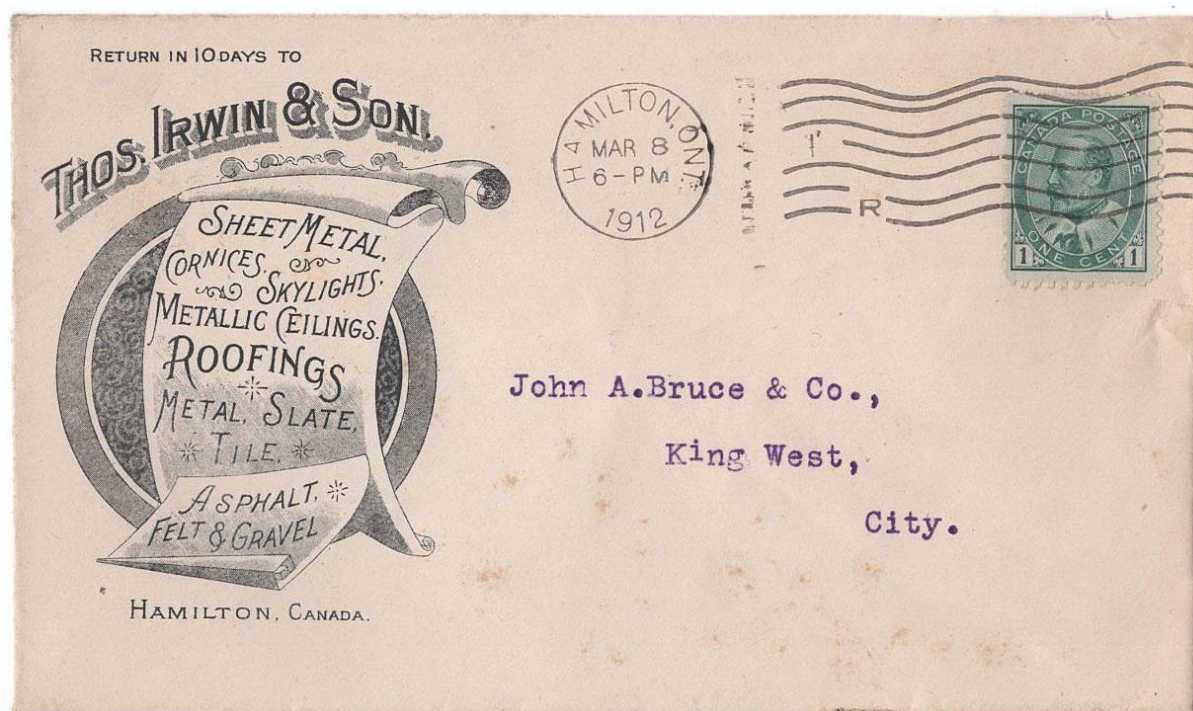 RETURN IN 10 DAYS TO
THOS. IRWIN & SON.
SHEET METAL,
CORNICES.
SKYLIGHTS.
METALLIC CEILINGS.
ROOFINGS
METAL, SLATE,
TILE.
ASPHALT,
FELT & GRAVEL
HAMILTON, CANADA.
HAMILTON, ONT.
MAR 8
6-PM
1912
R
CANADA POSTAGE
ONE CENT
1 1
John A.Bruce & Co.,
King West,
City.